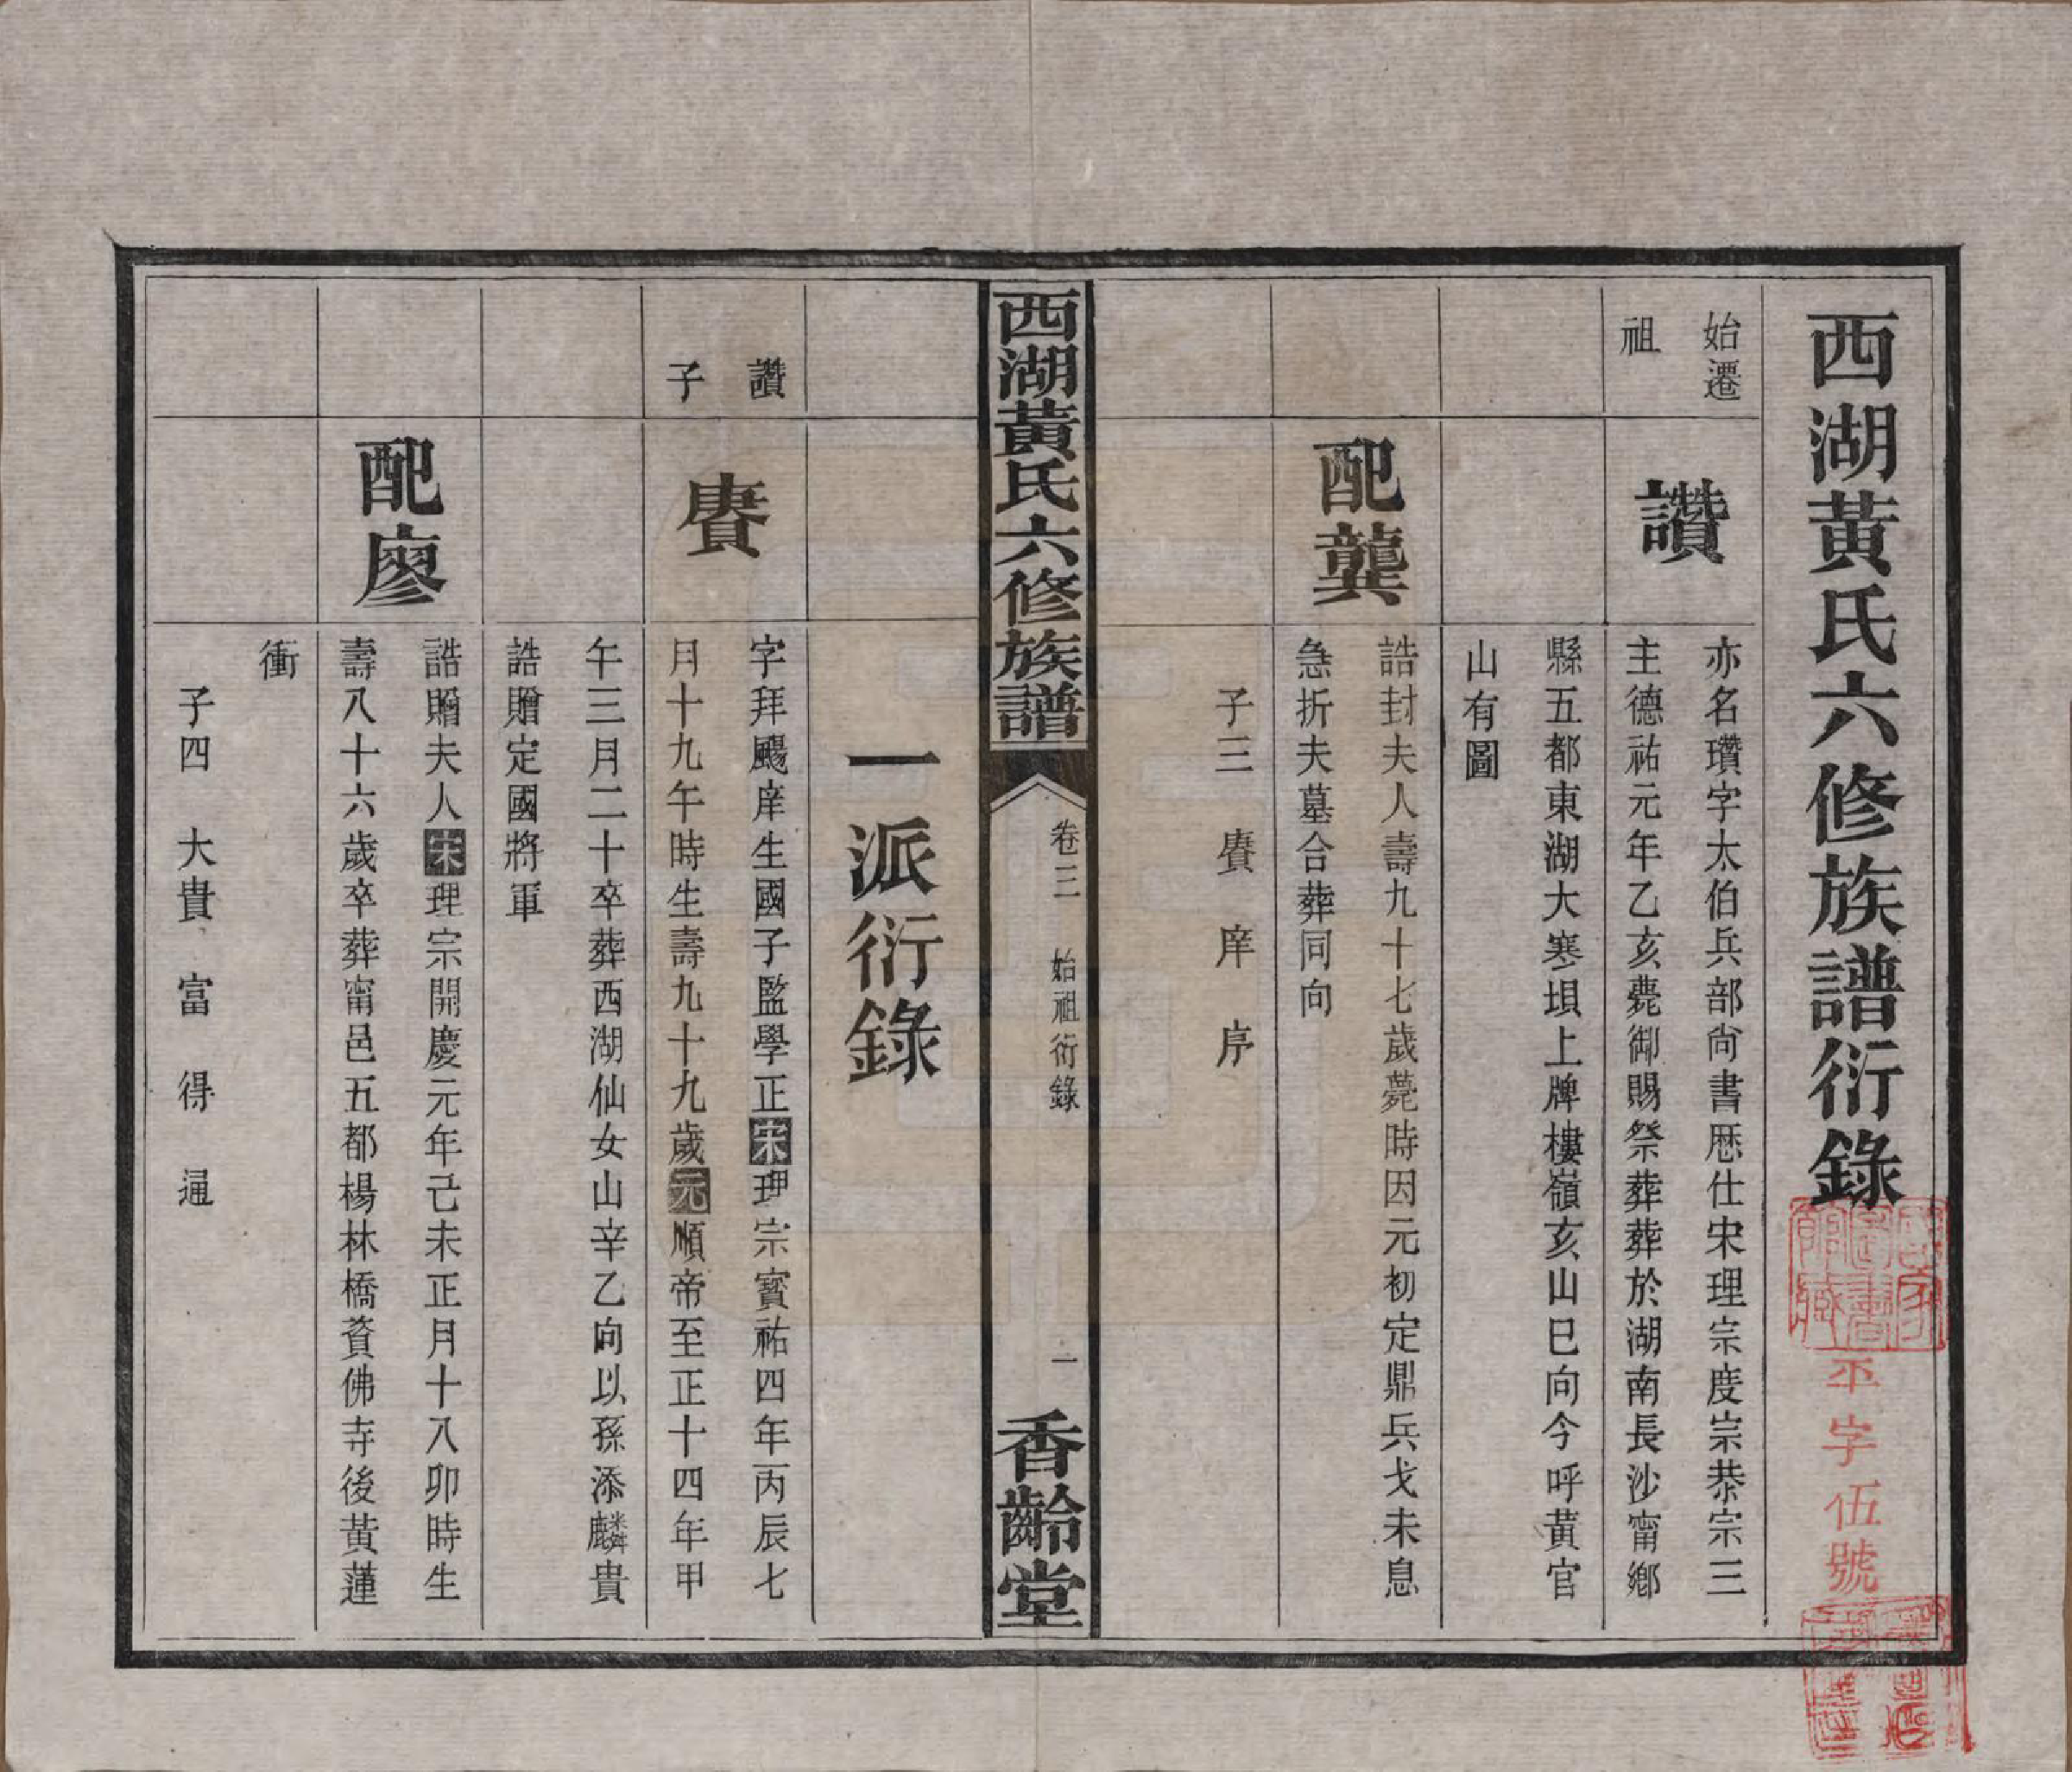 西湖黃氏六修族譜衍錄
平字伍號
始遷
祖
讚
亦名瓚字太伯兵部尙書歷仕宋理宗度宗恭宗三
主德祐元年乙亥薨御賜祭葬葬於湖南長沙甯鄉
縣五都東湖大寒垻上牌樓嶺亥山巳向今呼黃官
山有圖
配龔
誥封夫人壽九十七歲薨時因元初定鼎兵戈未息
急折夫墓合葬同向
子三 賡 庠 序
西湖黃氏六修族譜
卷三 始祖衍錄
一
香齡堂
一派衍錄
讚
子
賡
字拜颺庠生國子監學正宋理宗寳祐四年丙辰七
月十九午時生壽九十九歲元順帝至正十四年甲
午三月二十卒葬西湖仙女山辛乙向以孫添麟貴
誥贈定國將軍
配廖
誥贈夫人宋理宗開慶元年己未正月十八卯時生
壽八十六歲卒葬甯邑五都楊林橋資佛寺後黃蓮
衝
子四 大貴 富 得 通